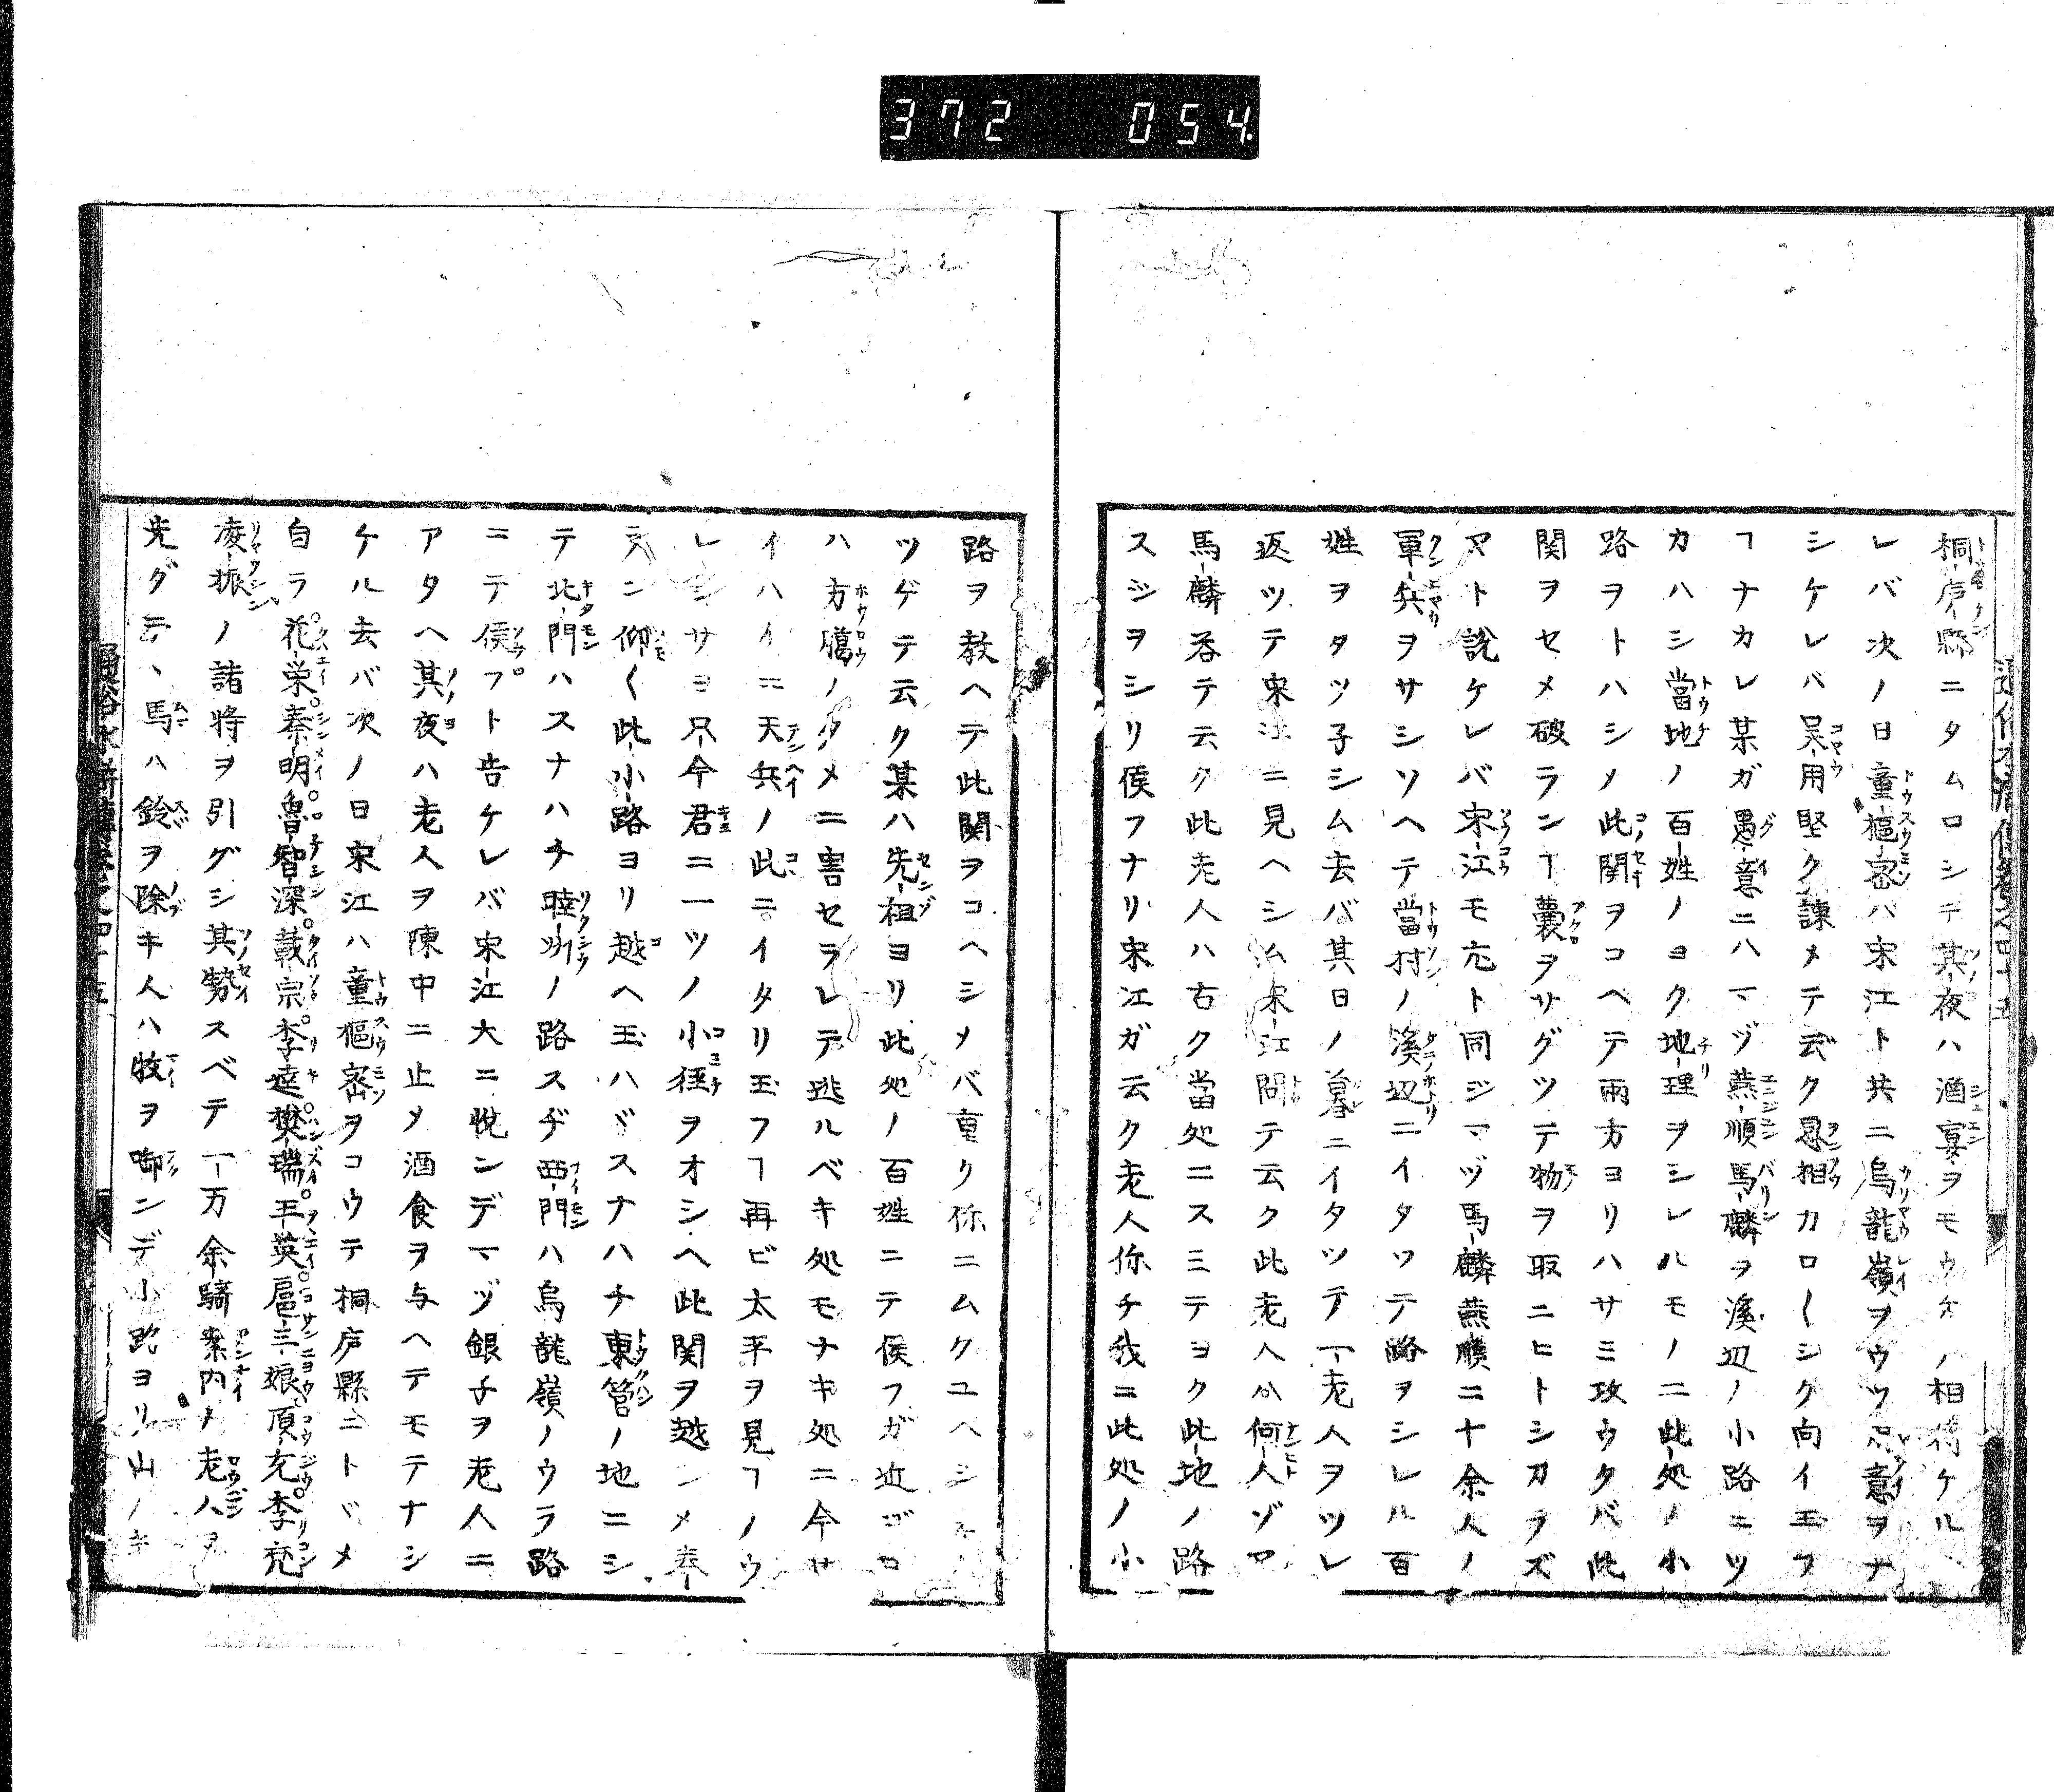 372 054
桐-廬-縣ニタムロシテ其-夜ハ酒-宴ヲモウケノ相待ケル、
レバ次ノ日童-樞-密ハ宋江ト共ニ烏龍嶺ヲウツ意ヲナ
シケレバ呉-用堅ク諫メテ云ク恩-相カロ〱シク向イ玉フ
ヿナカレ某ガ愚-意ニハマヅ燕-順馬-麟ヲ溪辺ノ小路ニツ
カハシ當-地ノ百-姓ノヨク地-理ヲシレルモノニ此-処ノ小
路ヲトハシメ此-関ヲコヘテ兩方ヨリハサミ攻ウタバ此
関ヲセメ破ランヿ囊ヲサグツテ物ヲ取ニヒトシカラズ
ヤト説ケレバ宋-江モ尤ト同ジマヅ馬-麟燕-順ニ十余人ノ
軍-兵ヲサシソヘテ當-村ノ溪辺ニイタツテ路ヲシレル百
姓ヲタツ子シム去バ其日ノ暮ニイタツテ一老人ヲツレ
返ツテ宋江ニ見ヘシム宋-江問テ云ク此老人ハ何-人ゾヤ
馬-麟答テ云ク此老人ハ古ク當処ニスミテヨク此-地ノ路
スジヲシリ候フナリ宋江ガ云ク老人你チ我ニ此処ノ小
路ヲ教ヘテ此関ヲコヘシメバ重ク你ニムクユヘシ
ツゲテ云ク某ハ先-祖ヨリ此処ノ百姓ニテ候フガ近ゴロ
ハ方臘ノタメニ害セラレテ逃ルベキ処モナキ処ニ今サ
イハイニ天兵ノ此ニイタリ玉フヿ再ビ太平ヲ見ルノウ
レシサヨ只今君ニ一ツノ小-徑ヲオシヘ此関ヲ越シメ奉-
ラン仰〱此-小-路ヨリ越ヘ玉ハバスナハチ東-管ノ地ニシ
テ北-門ハスナハチ睦-州ノ路スヂ西-門ハ烏龍嶺ノウラ路
ニテ侯フト告ケレバ宋-江大ニ悅ンデマヅ銀子ヲ老人ニ
アタヘ其夜ハ老人ヲ陳中ニ止メ酒食ヲ与ヘテモテナシ
ケル去バ次ノ日宋江ハ童樞密ヲコウテ桐庐縣ニトドメ
自ラ花-栄秦-明魯-智-深戴-宗李-逵樊-瑞王-英扈-三-娘項-充李-袞
凌-振ノ諸將ヲ引グシ其勢スベテ一万余騎案內ノ老人ヲ
先ダテ、馬ハ鈴ヲ除キ人ハ牧ヲ啣ンデ小路ヨリ山ノ